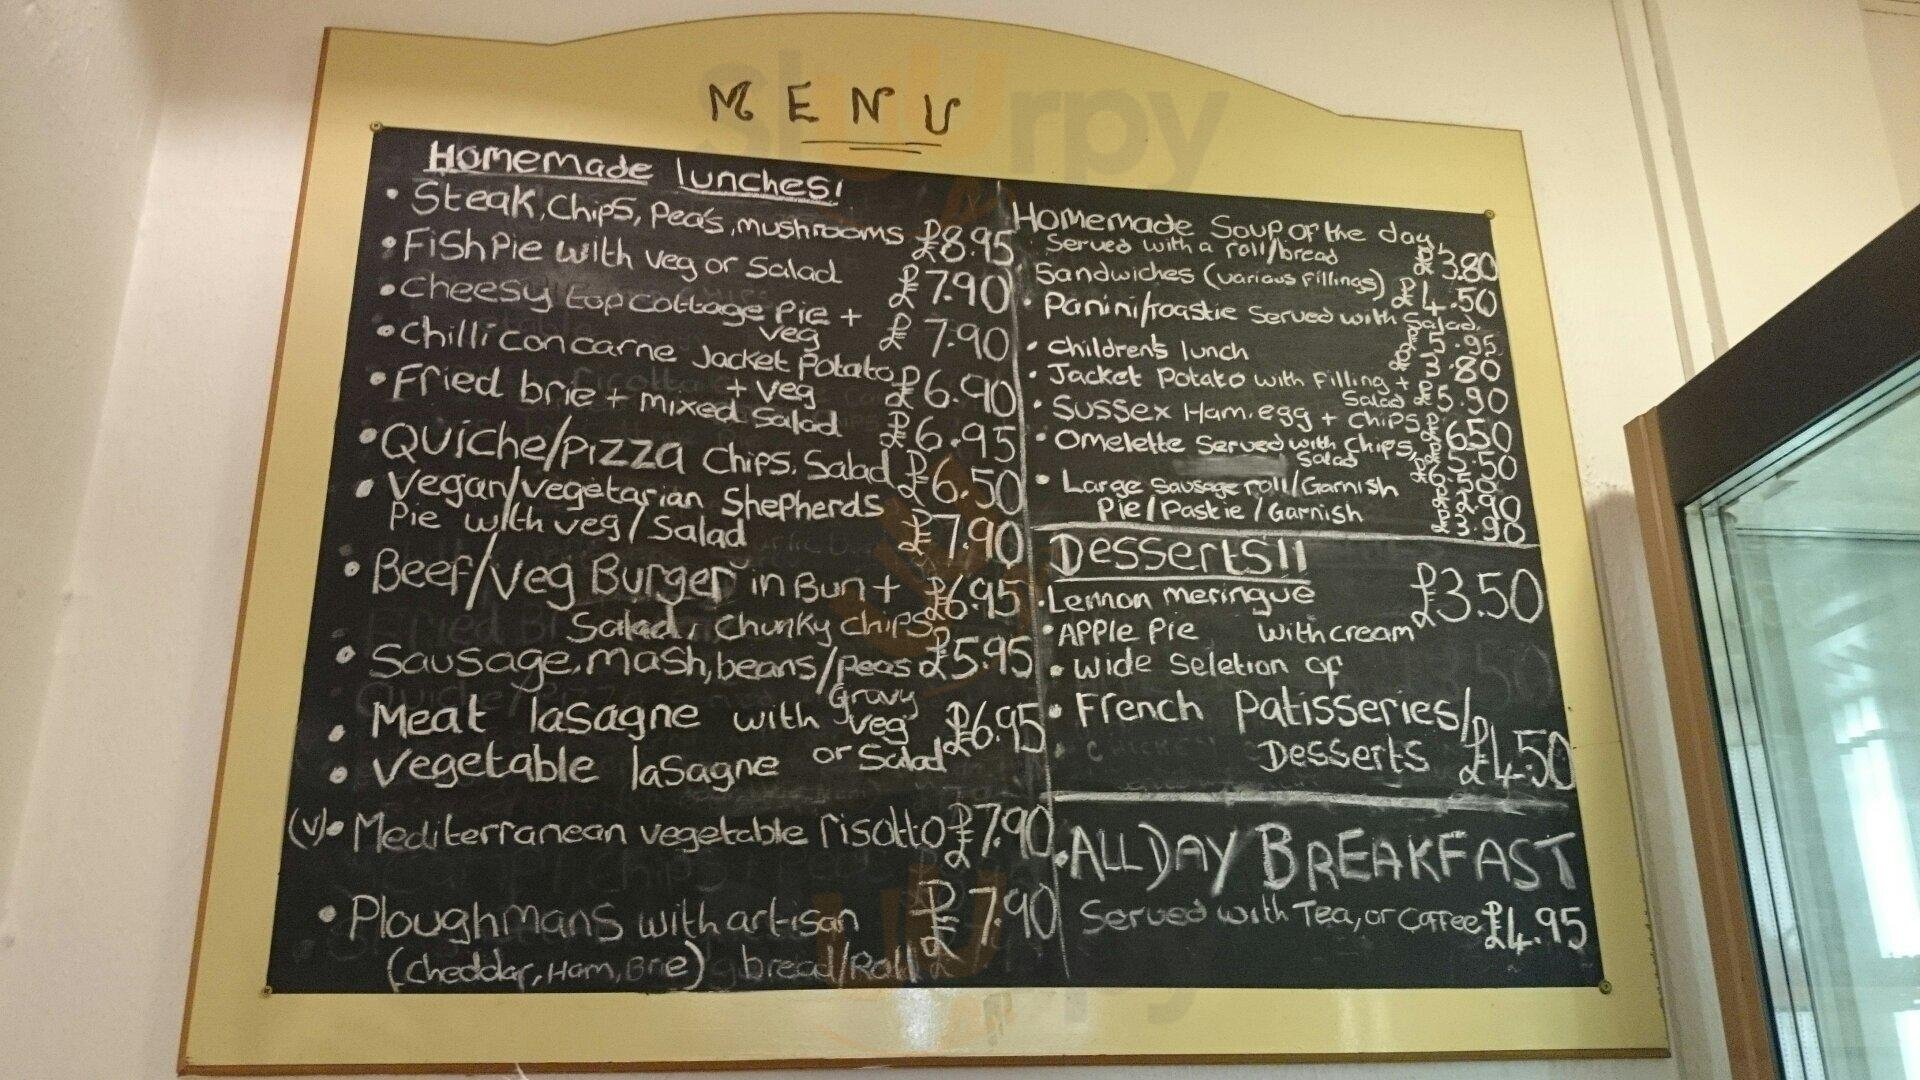 MENU
Homemade lunches!
• Steak, Chips, Pea's, mushrooms £8.95
• Fish Pie with veg or Salad £7.90
• Cheesy top cottage Pie + veg £7.90
• Chilli con carne Jacket Potato + veg £6.90
• Fried brie + mixed Salad £6.95
• Quiche/Pizza Chips, Salad £6.50
• Vegan/vegetarian Shepherds
Pie with veg/Salad £7.90
• Beef/Veg Burger in Bun + £6.95
Salad, Chunky chips
• Sausage, mash, beans/peas £5.95
Gravy
• Meat lasagne with veg £6.95
• Vegetable lasagne or Salad
(v)• Mediterranean vegetable risotto £7.90
• Ploughmans with artisan £7.90
(cheddar, Ham, Brie) bread/Roll
Homemade Soup of the day
Served with a roll/bread £3.80
Sandwiches (various fillings) £4.50
• Panini/toastie Served with Salad £5.95
• Children's lunch £3.80
• Jacket Potato with Filling + Salad £5.90
• Sussex Ham, egg + Chips £6.50
• Omelette Served with Chips, Salad £5.50
• Large Sausage roll/Garnish
Pie/Pastie/Garnish £3.90
Desserts!!
• Lemon meringue £3.50
• Apple Pie with cream
• Wide Seletion of
• French Patisseries/
Desserts £4.50
• ALL DAY BREAKFAST
Served with Tea, or Coffee £4.95
slurrpy